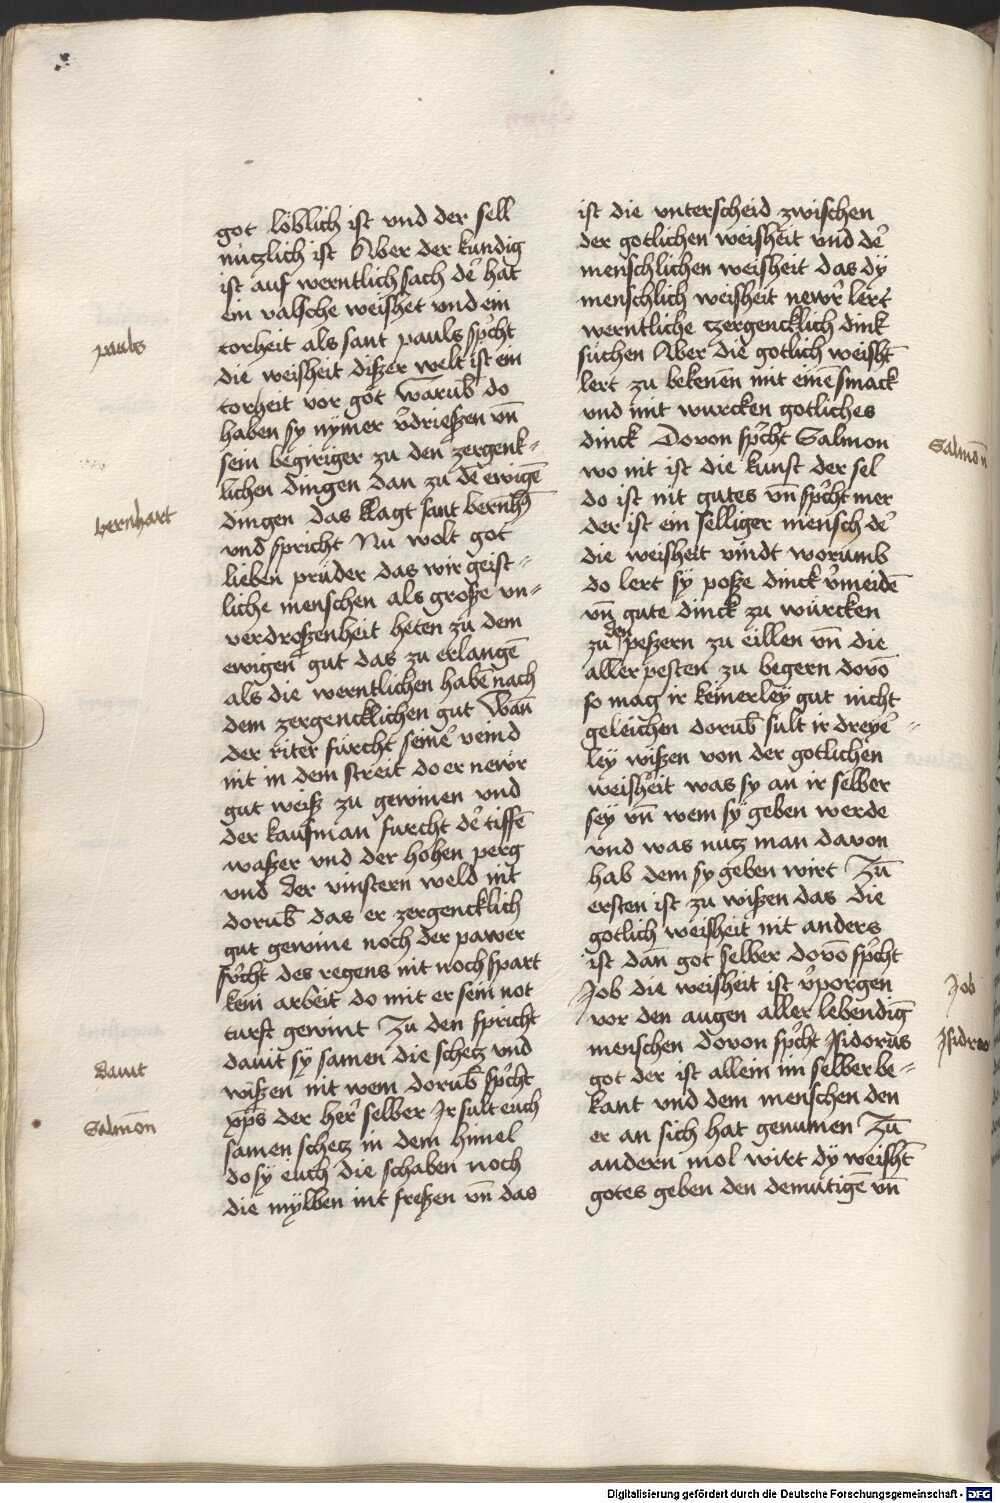 got löblich ist vnd der sell
nuczlich ist Aber der kundig
ist auf werntlich sach der̕ hat
ein valsche weishet vnd ein
torheit als sant pauls sp̕cht
pauls
die weisheit diszer welt ist ein
torheit vor got Warub̄ do
haben sy nymer v̕drieszen vn̄
sein begiriger zu den zergenk-
lichen dingen dan zu de ewigē
dingen das klagt sant bernh̄
bernhart
vnd spricht Nu wolt got
lieben prüder das wir geist-
liche menschen als grosze vn-
verdroszenheit heten zu dem
ewigen gut das zu erlangē
als die werntlichen habē nach
dem zergencklichen gut Wan̄
der riter fürcht seiner̕ veind
nit in dem streit do er newr
gut weisz zu gewinen vnd
der kaufman furcht de̕ tiffē
waszer vnd der hohen perg
vnd der vinstern weld nit
dorub̄ das er zergencklich
gut gewine noch der pawer
fv̕cht des regens nit noch spart
kein arbeit do mit er sein not
turft gewint Zu den spricht
dauit sy samen die schecz vnd
dauit
wiszen nit wem dorub̄ sp̕cht
xp̄s der her̕ selber Ir sult euch
Salmōn
samen schecz in dem himel
do sÿ euch die schaben noch
die mÿlben nit freszen vn̄ das
ist die vnterscheid zwischen
der gotlichen weisheit vnd de̕
menschlichen weisheit das dÿ
menschlich weisheit newr̕ lert
werntliche czergencklich dink
suchen Aber die gotlich weisht̄
lert zu bekenen mit eine smack
vnd mit wurcken gotliches
dinck Dovon sp̕cht Salmon
Salmon̄
wo nit ist die kunst der sel
do ist nit gutes vn̄ sp̕cht mer
der ist ein selliger mensch de̕
die weisheit vindt worumb
do lert sÿ posze dinck v̕meidē
vn̄ gute dinck zu würcken
zu den peszern zu eillen vn̄ die
aller pesten zu begern dovō
so mag ir keinerleÿ gut nicht
geleichen dorub̄ sult ir dreye̕-
leÿ wiszen von der gotlichen
weisheit was sy an ir selber
seÿ vn̄ wem sÿ geben werde
vnd was nucz man davon
hab dem sy geben wirt Zū
ersten ist zu wiszen das die
gotlich weisheit nit anders
ist dan̄ got selber dovō sp̕cht
Job die weisheit ist v̕porgen
Job
vor den augen aller lebendiḡ
menschen Dovon sp̕cht Isidorus
Isidrus
got der ist allein im selber be-
kant vnd dem menschen den
er an sich hat genumen Zū
andern mol wirt dÿ weisht̄
gotes geben den demutigē vn̄
Digitalisierung gefördert durch die Deutsche Forschungsgemeinschaft - DFG